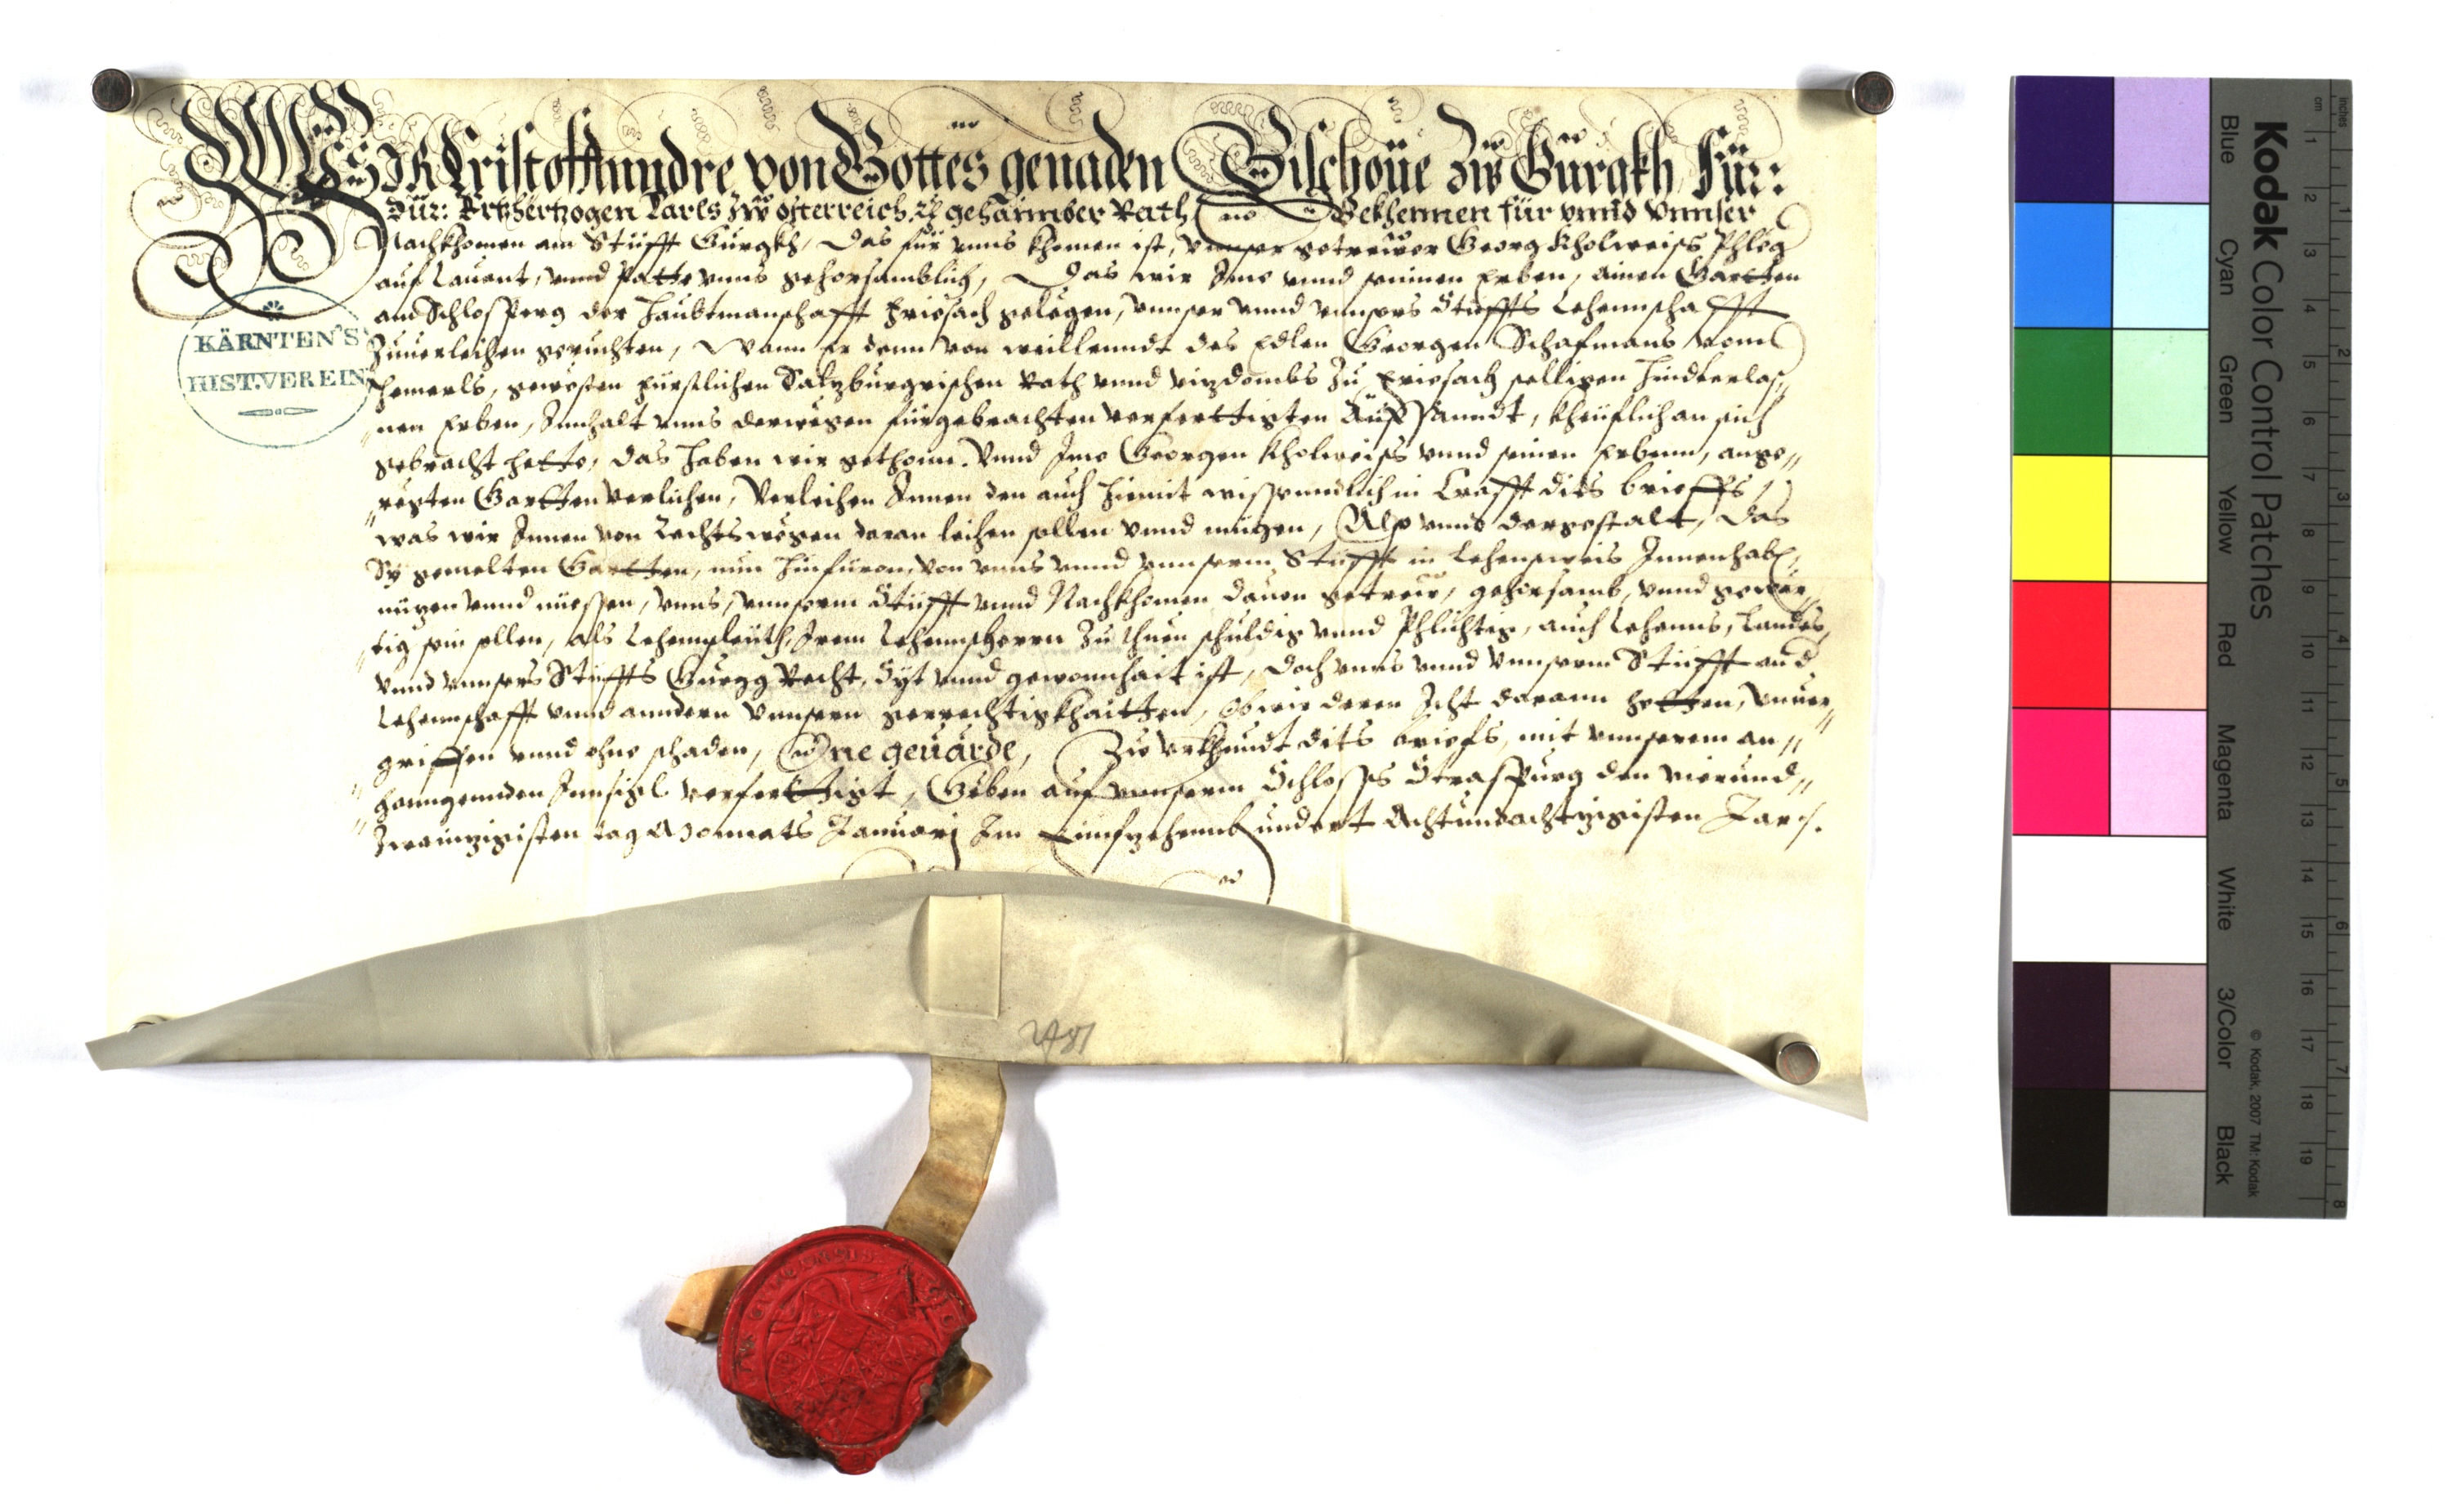 WIR Cristoff Anndre von Gottes genaden Bischoue zw Gurgkh Für:
Dür: Ertzhertzogen Carls zw Osterreich, etc. gehaimber Rath Bekhennen für vnnd vnnser
Nachkhomen am Stüfft Gurgkh, Das für vnns khomen ist, vnnser getrewer Georg Kholweiss Phleg
auf Lauent, vnnd patte vnns gehorsamblich, Das wir Ime vnnd seinen Erben, ainen Gartten
am Schlosperg der Haubtmanschafft Friesach gelegen, vnnser vnnd vnnsers Stüffts Lehennschafft
Zuuerleihen geruchten, Wann Er denn von weillenndt des Edlen Georgen Schafmans vom
Hemerls, gewesten Fürstlichen Saltzburgerischen Rath vnnd vizdombs zu Friesach selligen Hindterlas,,
nen Erben, Innhalt vnns derwegen fürgebrachten verferttigten Aufsanndt, kheuflich an sich
gebracht hette, das haben wir gethonn. Vnnd Ime Georgen Kholweiss vnnd seinen Erbenn, ange,,
regten Gartten verlichen, Verleihen Innen den auch hiemit wissenndlich in Crafft dits brieffs,
was wir Innen von Rechtswegen daran leihen sollen vnnd mügen, Also vnnd dergestalt, Das
Sy gemelten Gartten, nun hinfuron, von vnns vnnd vnnserm Stüfft in Lehensweis Innenhab,,
nüzen vnnd niessen, vnns, vnnserm Stüfft vnnd Nachkhomen dauon getrew, gehorsamb, vnnd gewer,,
tig sein sollen, als Lehennsleüth, Irem Lehennsherrn zu thuen schuldig vnnd Phlichtig, auch Lehenns, Landes,
vnnd vnnsers Stüffts Gurgg Recht, Syt vnnd gewonnhait ist, doch vnns vnnd vnnserm Stüfft an d
Lehennschafft vnnd anndern vnnsern gerechtigkhaitten, ob wir deren Icht darann hetten, vnuer,,
griffen vnnd ohne schaden, One geuärde, Zu vrkhundt dits briefs, mit vnnserem an,,
hanngennden Innsigl verferttigt, Geben auf vnnserm Schlosss Strasspurg den vierund,,
Zwaintzigisten tag Monnats Januarj Im Fünfzehennhundert Achtundachtzigisten Jar.
KÄRNTEN'S
HIST. VEREIN
Kodak Color Control Patches
Blue Cyan Green Yellow Red Magenta White 3/Color Black
© Kodak, 2007 TM: Kodak
cm 1 2 3 4 5 6 7 8 9 10 11 12 13 14 15 16 17 18 19
inches 1 2 3 4 5 6 7 8